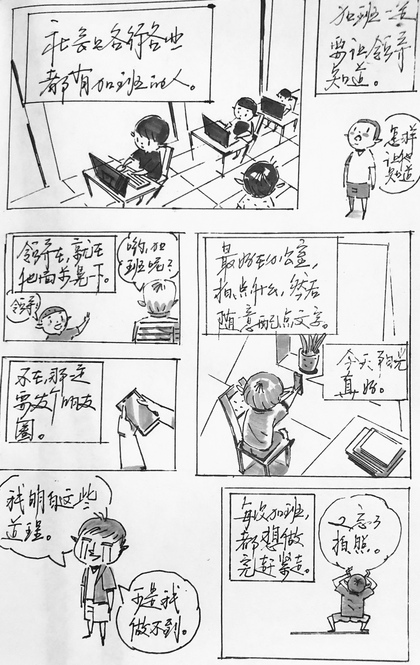 社会上各行各业
都有加班的人。
加班一定
要让领导
知道。
怎样
让他
知道
领导在,就在
他面前晃一下。
领导!
哟,加
班呢?
最好在办公室,
拍点什么,然后
随意配点文字。
不在,那还
要发个朋友
圈。
今天阳光
真好。
我明白这些
道理。
可是我
做不到。
每次加班,
都想做
完赶紧走。
又忘了
拍照。